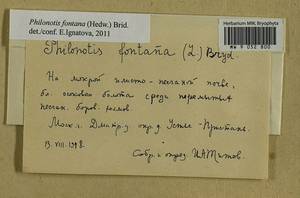 Philonotis fontana (Hedw.) Brid.
det./conf. E.Ignatova, 2011
Herbarium MW, Bryophyta
MW 9 032 800
Philonotis fontana (L.) Bryd.
На мокрой илисто-песчаной почве,
бл. осоковая болота среди
песчан. боров.
Моск. г. Дмитр. у окр. д. Устье-Пристань.
13.VIII.
Собр. и опред. И.А.Титов.